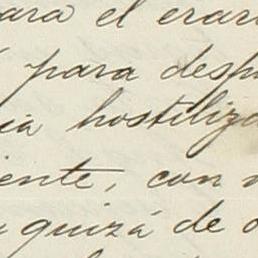 ara el erar
para desp
ia hostiliza
iente, con
quizá de